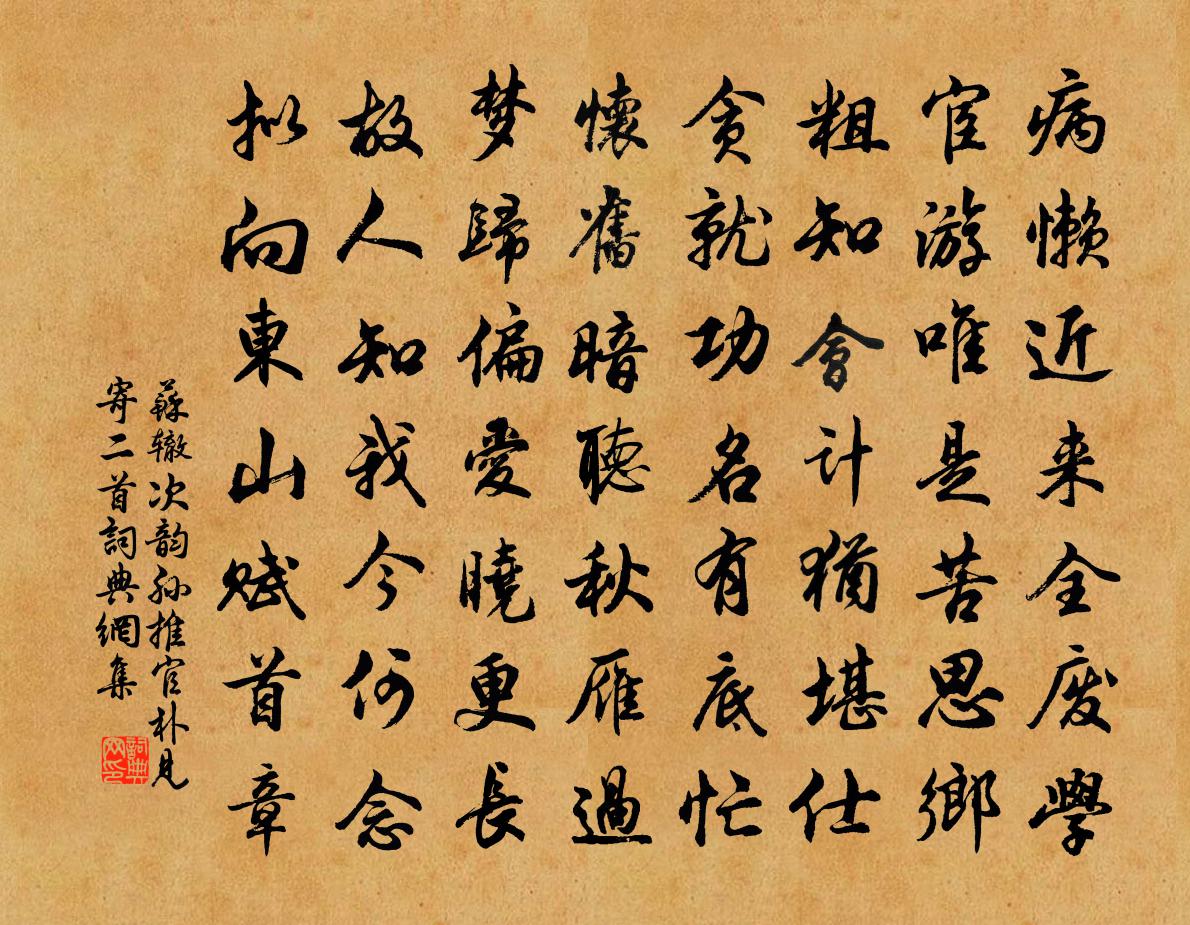 病懒近来全废學
宦游唯是苦思鄉
粗知會计猶堪仕
贪就功名有底忙
懷舊暗聽秋雁過
梦歸偏愛曉更長
故人知我今何念
拟向東山赋首章
蘇辙次韵孙推官朴见
寄二首詞典網集
詞典网印